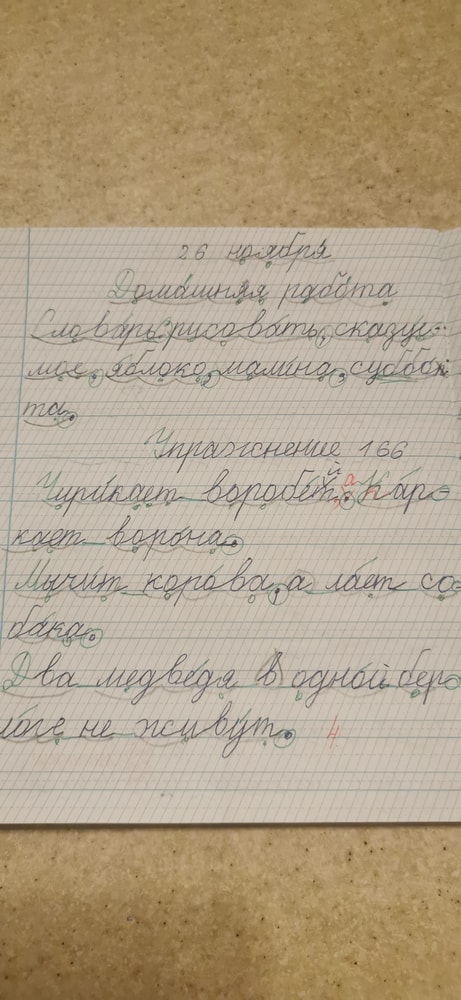 26 ноября
Домашняя работа
Словарь: рисовать, сказуе-
мое, яблоко, малина, суббо-
та.
Упражнение 166
Чирикает воробей, а кар-
кает ворона.
Мычит корова, а лает со-
бака.
Два медведя в одной бер-
логе не живут. 4